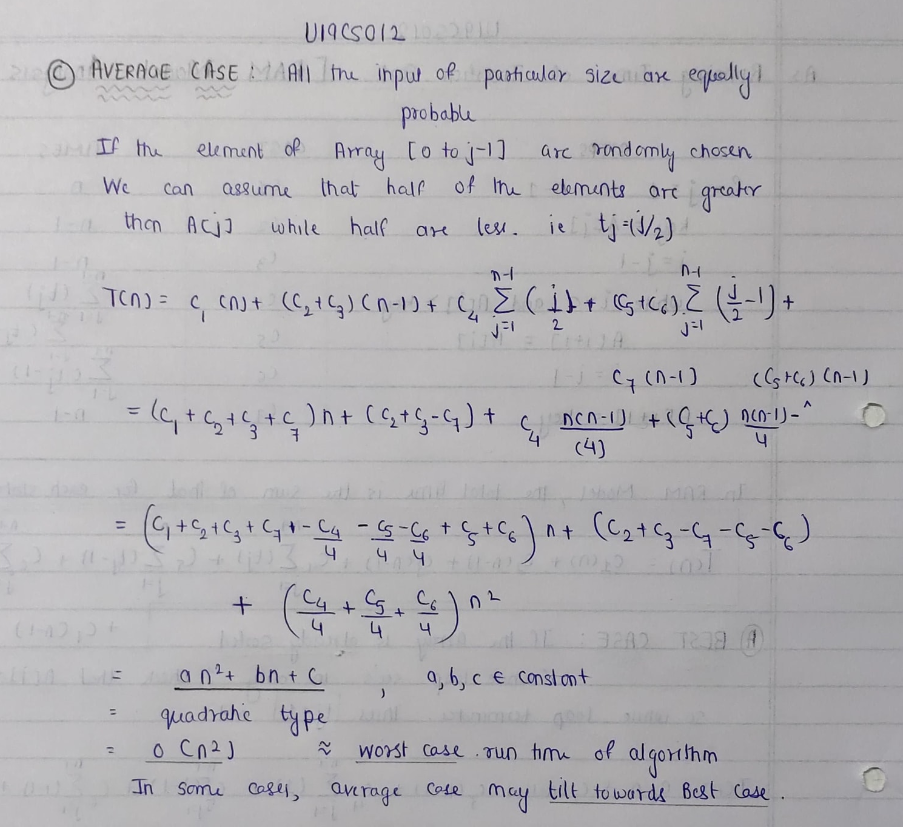 U19CS012
Ⓒ AVERAGE CASE : All the input of particular size are equally
probable
If the element of Array [0 to j-1] are randomly chosen
We can assume that half of the elements are greater
than A[j] while half are less. ie tj = (j/2)
T(n) = C₁(n) + (C₂+C₃)(n-1) + C₄ Σ_{j=1}^{n-1} (j/2) + (C₅+C₆) Σ_{j=1}^{n-1} (j/2 - 1) +
C₇(n-1) (C₅+C₆)(n-1)
= (C₁+C₂+C₃+C₇)n + (C₂+C₃-C₇) + C₄ n(n-1)/(4) + (C₅+C₆) n(n-1)/4 - ^
= (C₁+C₂+C₃+C₇+-C₄/4 - C₅/4 - C₆/4 + C₅+C₆)n + (C₂+C₃-C₇-C₅-C₆)
+ (C₄/4 + C₅/4 + C₆/4) n²
= an² + bn + c , a, b, c ∈ constant
= quadratic type
= O(n²) ≈ worst case run time of algorithm
In some cases, average case may tilt towards Best Case.